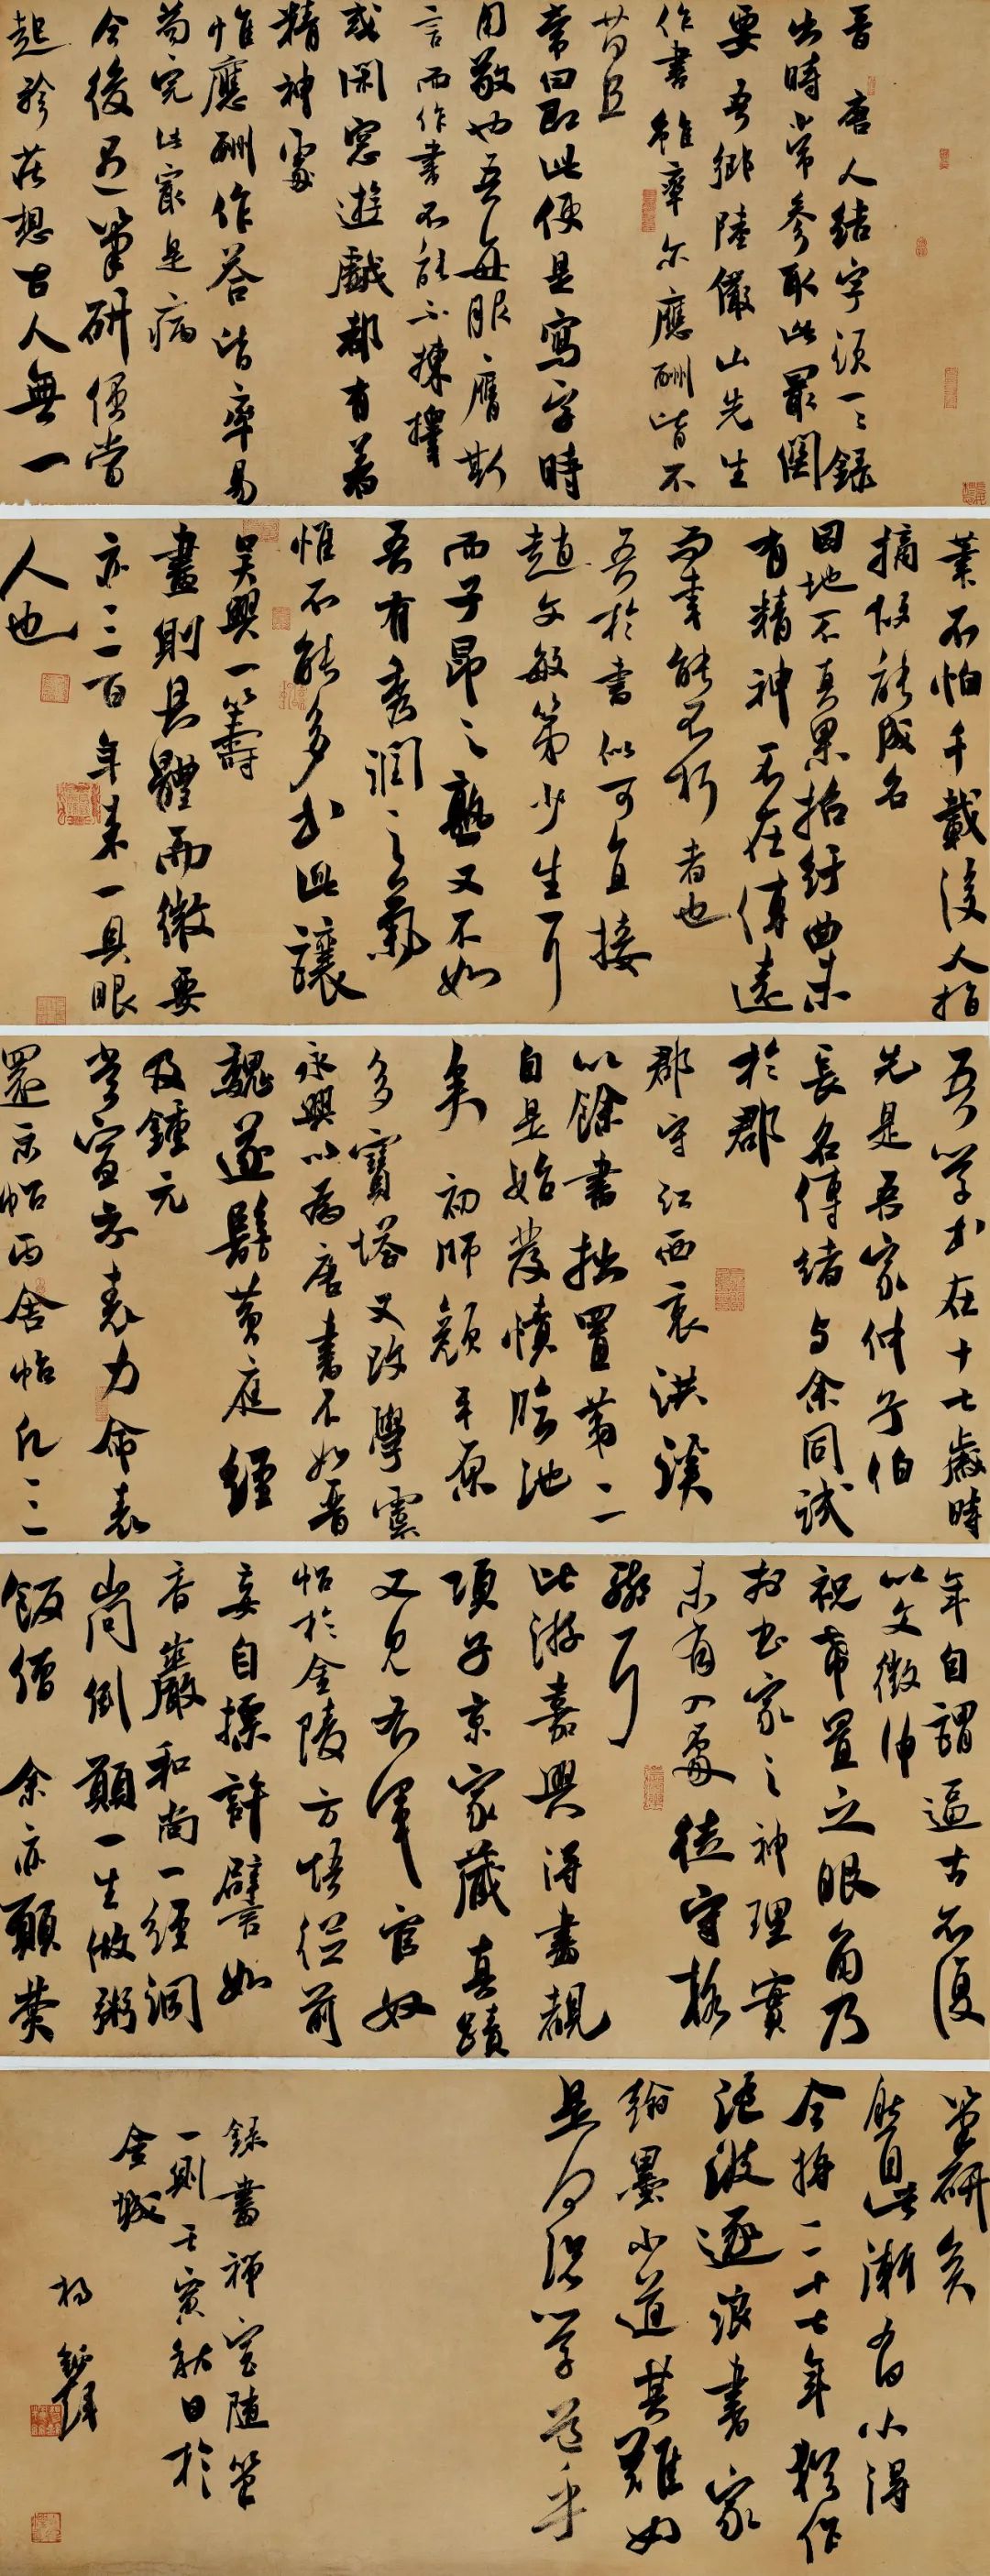 晉唐人結字須一一錄
出時常參取此最關
要吾鄉陸儼山先生
作書雖率尔應酬皆不
苟且
常曰即此便是寫字時
用敬也吾每服膺斯
言而作書不能不揀擇
或閑窓遊戲都有著
精神處
惟應酬作荅皆率易
苟完此最是病
今後遇筆研便當
起矜莊想古人無一
筆不怕千載後人指
摘故能成名
因地不真果招紆曲未
有精神不在傳遠
而幸能不朽者也
吾於書似可直接
趙文敏第少生耳
而子昂之熟又不如
吾有秀潤之氣
惟不能多書此讓
吳興一籌
畫則具體而微要
亦三百年來一具眼
人也
吾學書在十七歲時
先是吾家仲子伯
長名傳緒与余同試
於郡
郡守江西袁洪溪
以余書拙置第二
自是始發憤臨池
矣初師顏平原
多寶塔又改學虞
永興以為唐書不如晉
魏遂髣黄庭經
及鍾元
常宣示表力命表
還示帖丙舍帖凡三
年自謂逼古不復
以文徵仲
祝希哲置之眼角乃
於書家之神理實
未有入處徒守格
轍耳
比游嘉興得書覩
項子京家藏真蹟
又見右軍官奴
帖於金陵方悟從前
妄自摽許譬如
香嚴和尚一經洞
山問倒願一生做粥
飯僧余亦願焚
筆研矣
然自此漸有小得
今將二十七年猶作
随波逐浪書家
翰墨小道其難如
是何况學道乎
錄書禅室随筆
一則壬寅秋日於
金城